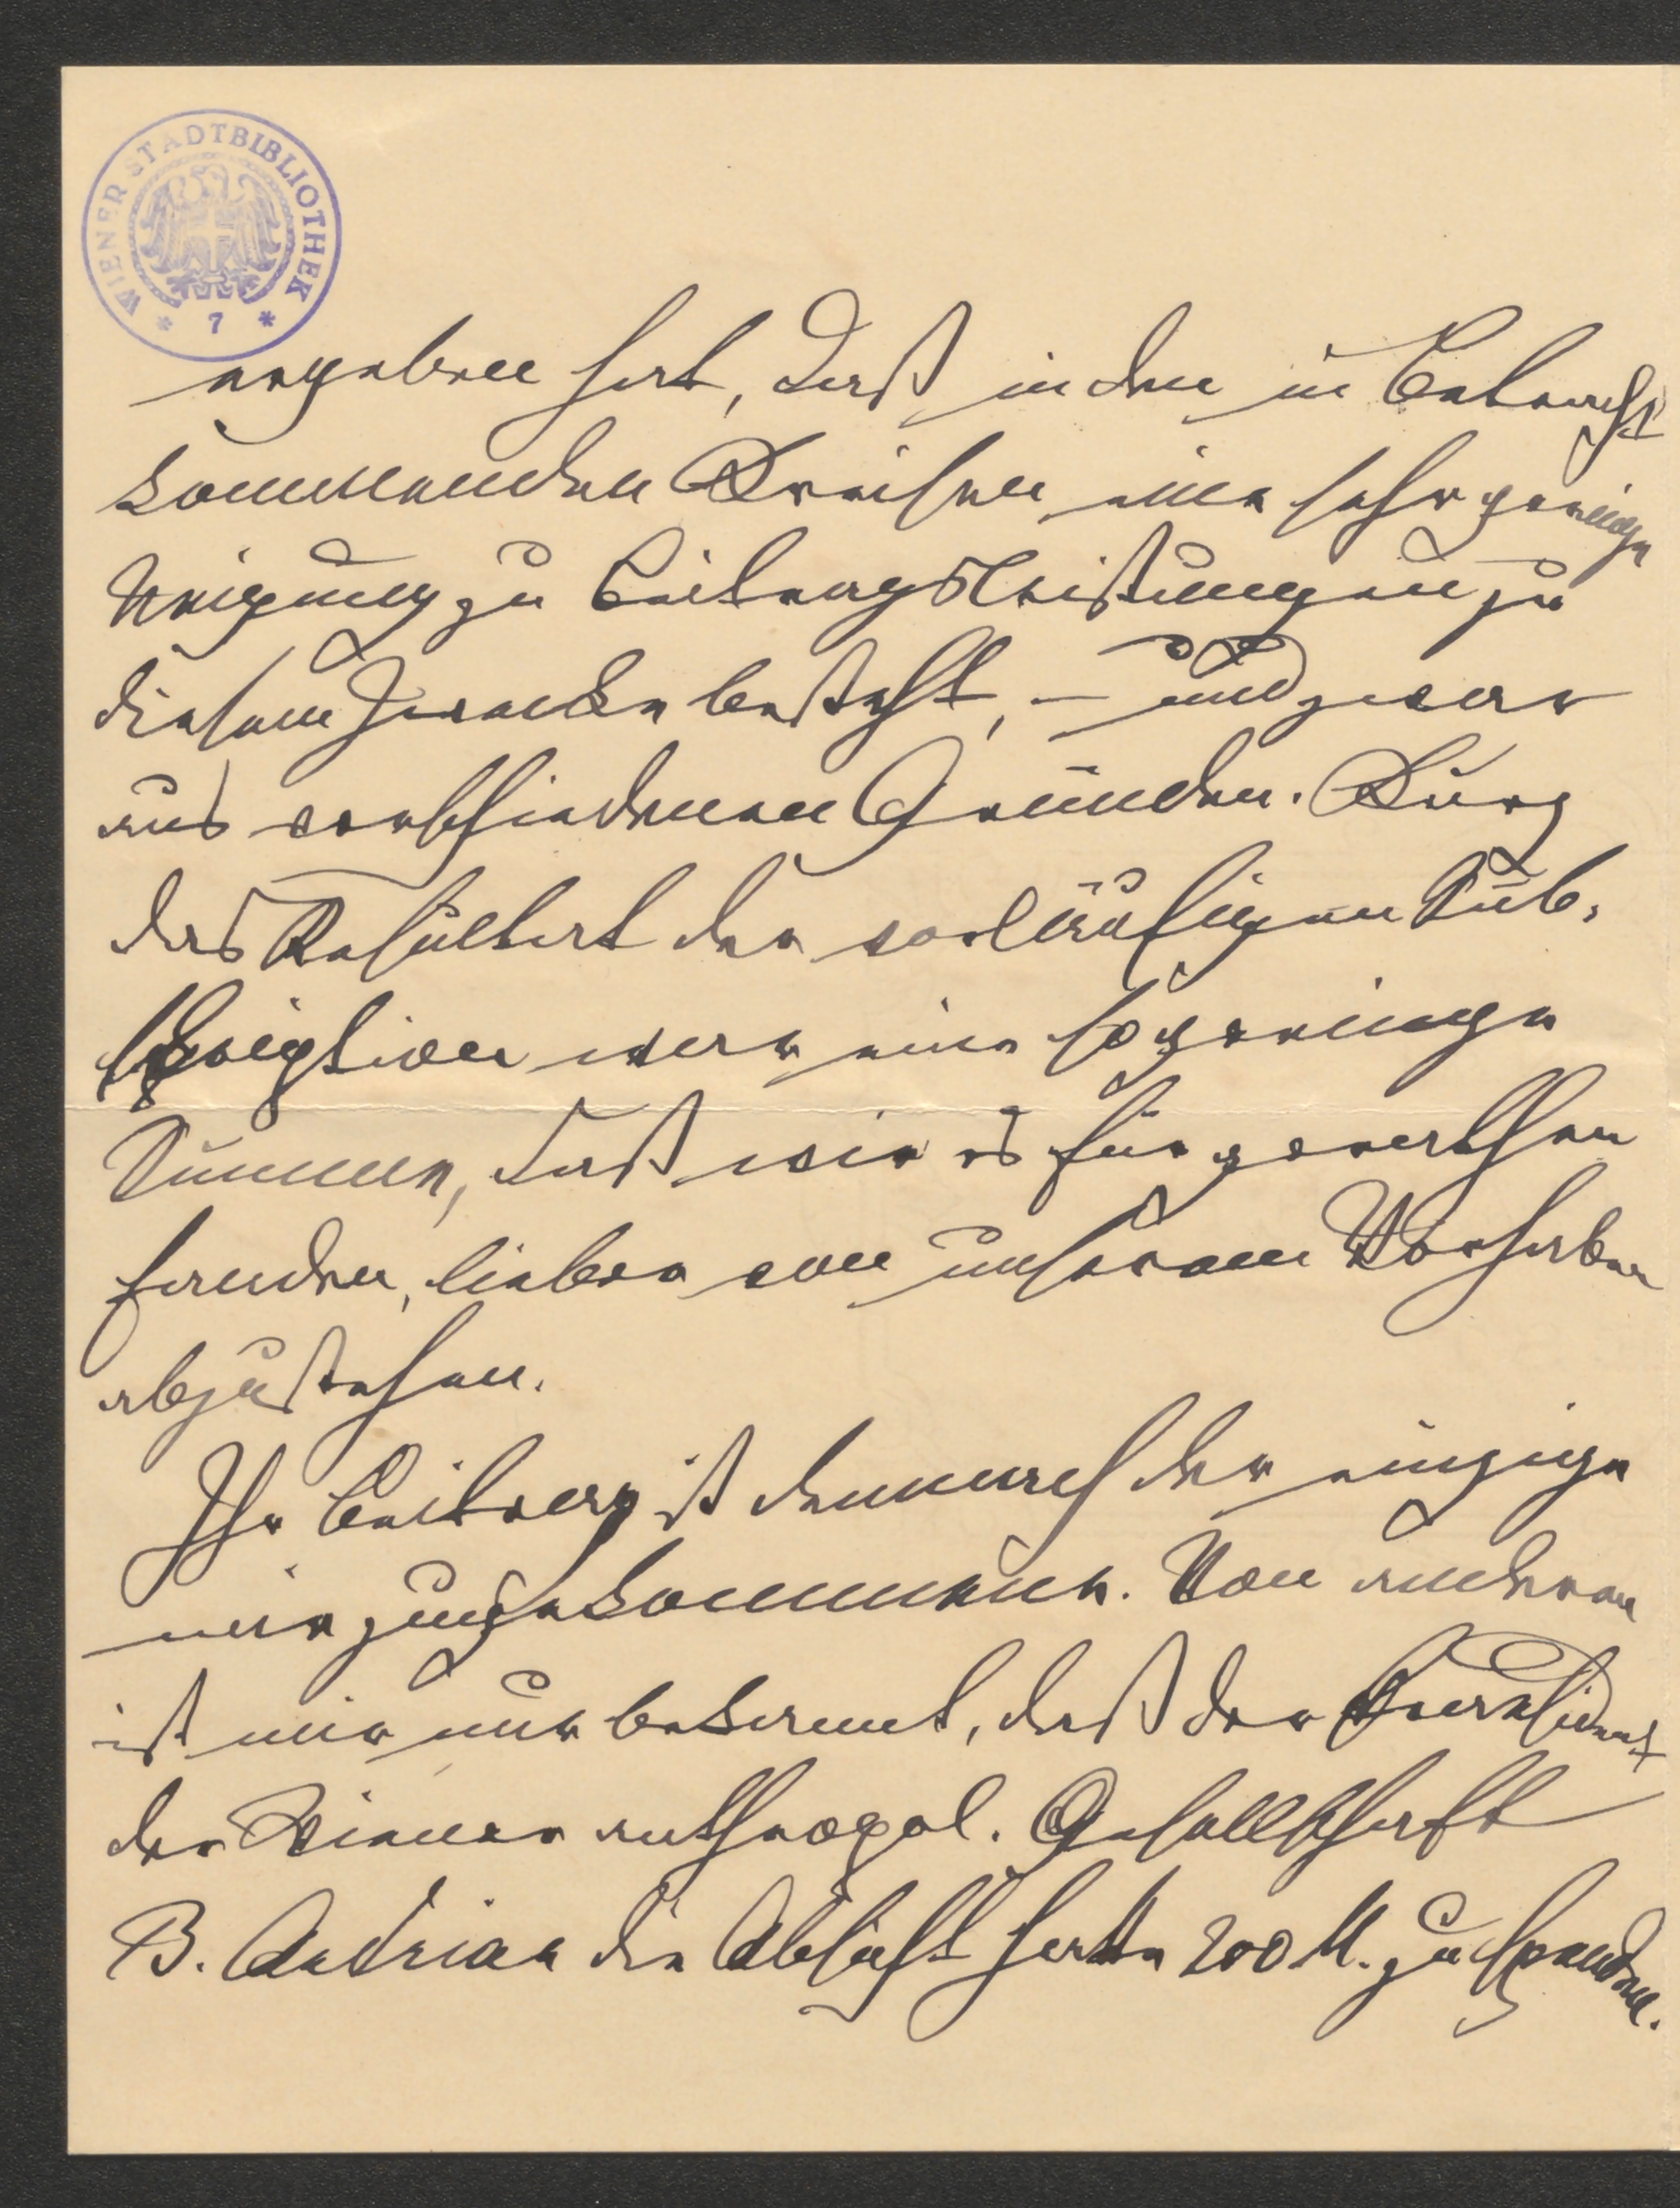 WIENER STADTBIBLIOTHEK
* 7 *
ergeben hat, daß in den in Betracht
kommenden Kreisen eine sehr geringe
Neigung zu Beitragsleistungen zu
diesem Zwecke besteht, – und zwar
aus verschiedenen Gründen. Kurz
das Resultat der vorläufigen Sub-
skription war eine so geringe
Summe, daß wir es für gerathen
fanden, lieber von unserem Vorhaben
abzustehen.
Ihr Beitrag ist demnach der einzige
mir zugekommene. Von anderen
ist mir nur bekannt, daß der Praesident
der Wiener anthropol. Gesellschaft
B. Andrian die Absicht hatte 200 M. zu spenden.